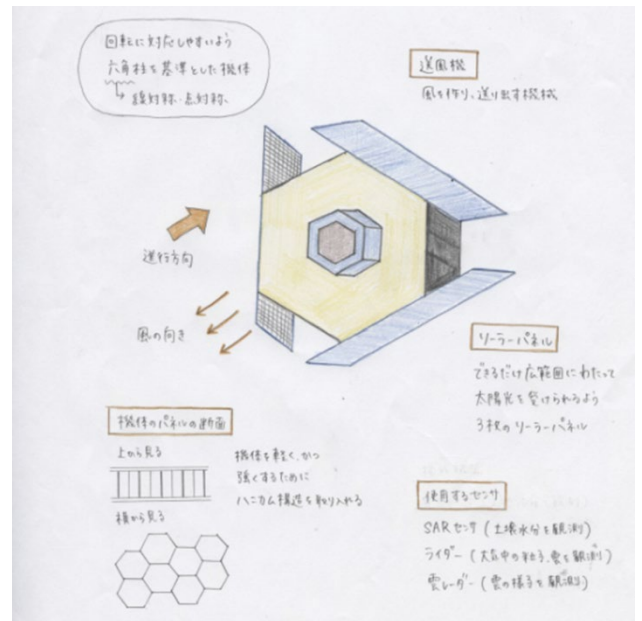 回転に対応しやすいよう
六角柱を基準とした機体
線対称・点対称、
送風機
風を作り、送り出す機械
進行方向
風の向き
ソーラーパネル
できるだけ広範囲にわたって
太陽光を受けられるよう
3枚のソーラーパネル
機体のパネルの断面
上から見る
機体を軽く、かつ
強くするために
ハニカム構造を取り入れる
横から見る
使用するセンサ
SARセンサ (土壌水分を観測)
ライダー (大気中の粒子、雲を観測)
雲レーダー (雲の様子を観測)